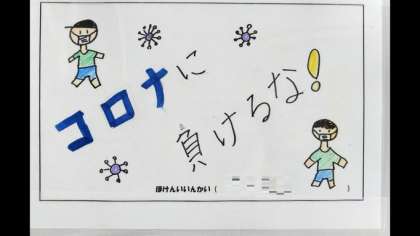 コロナに
負けるな!
ほけんいいんかい( )